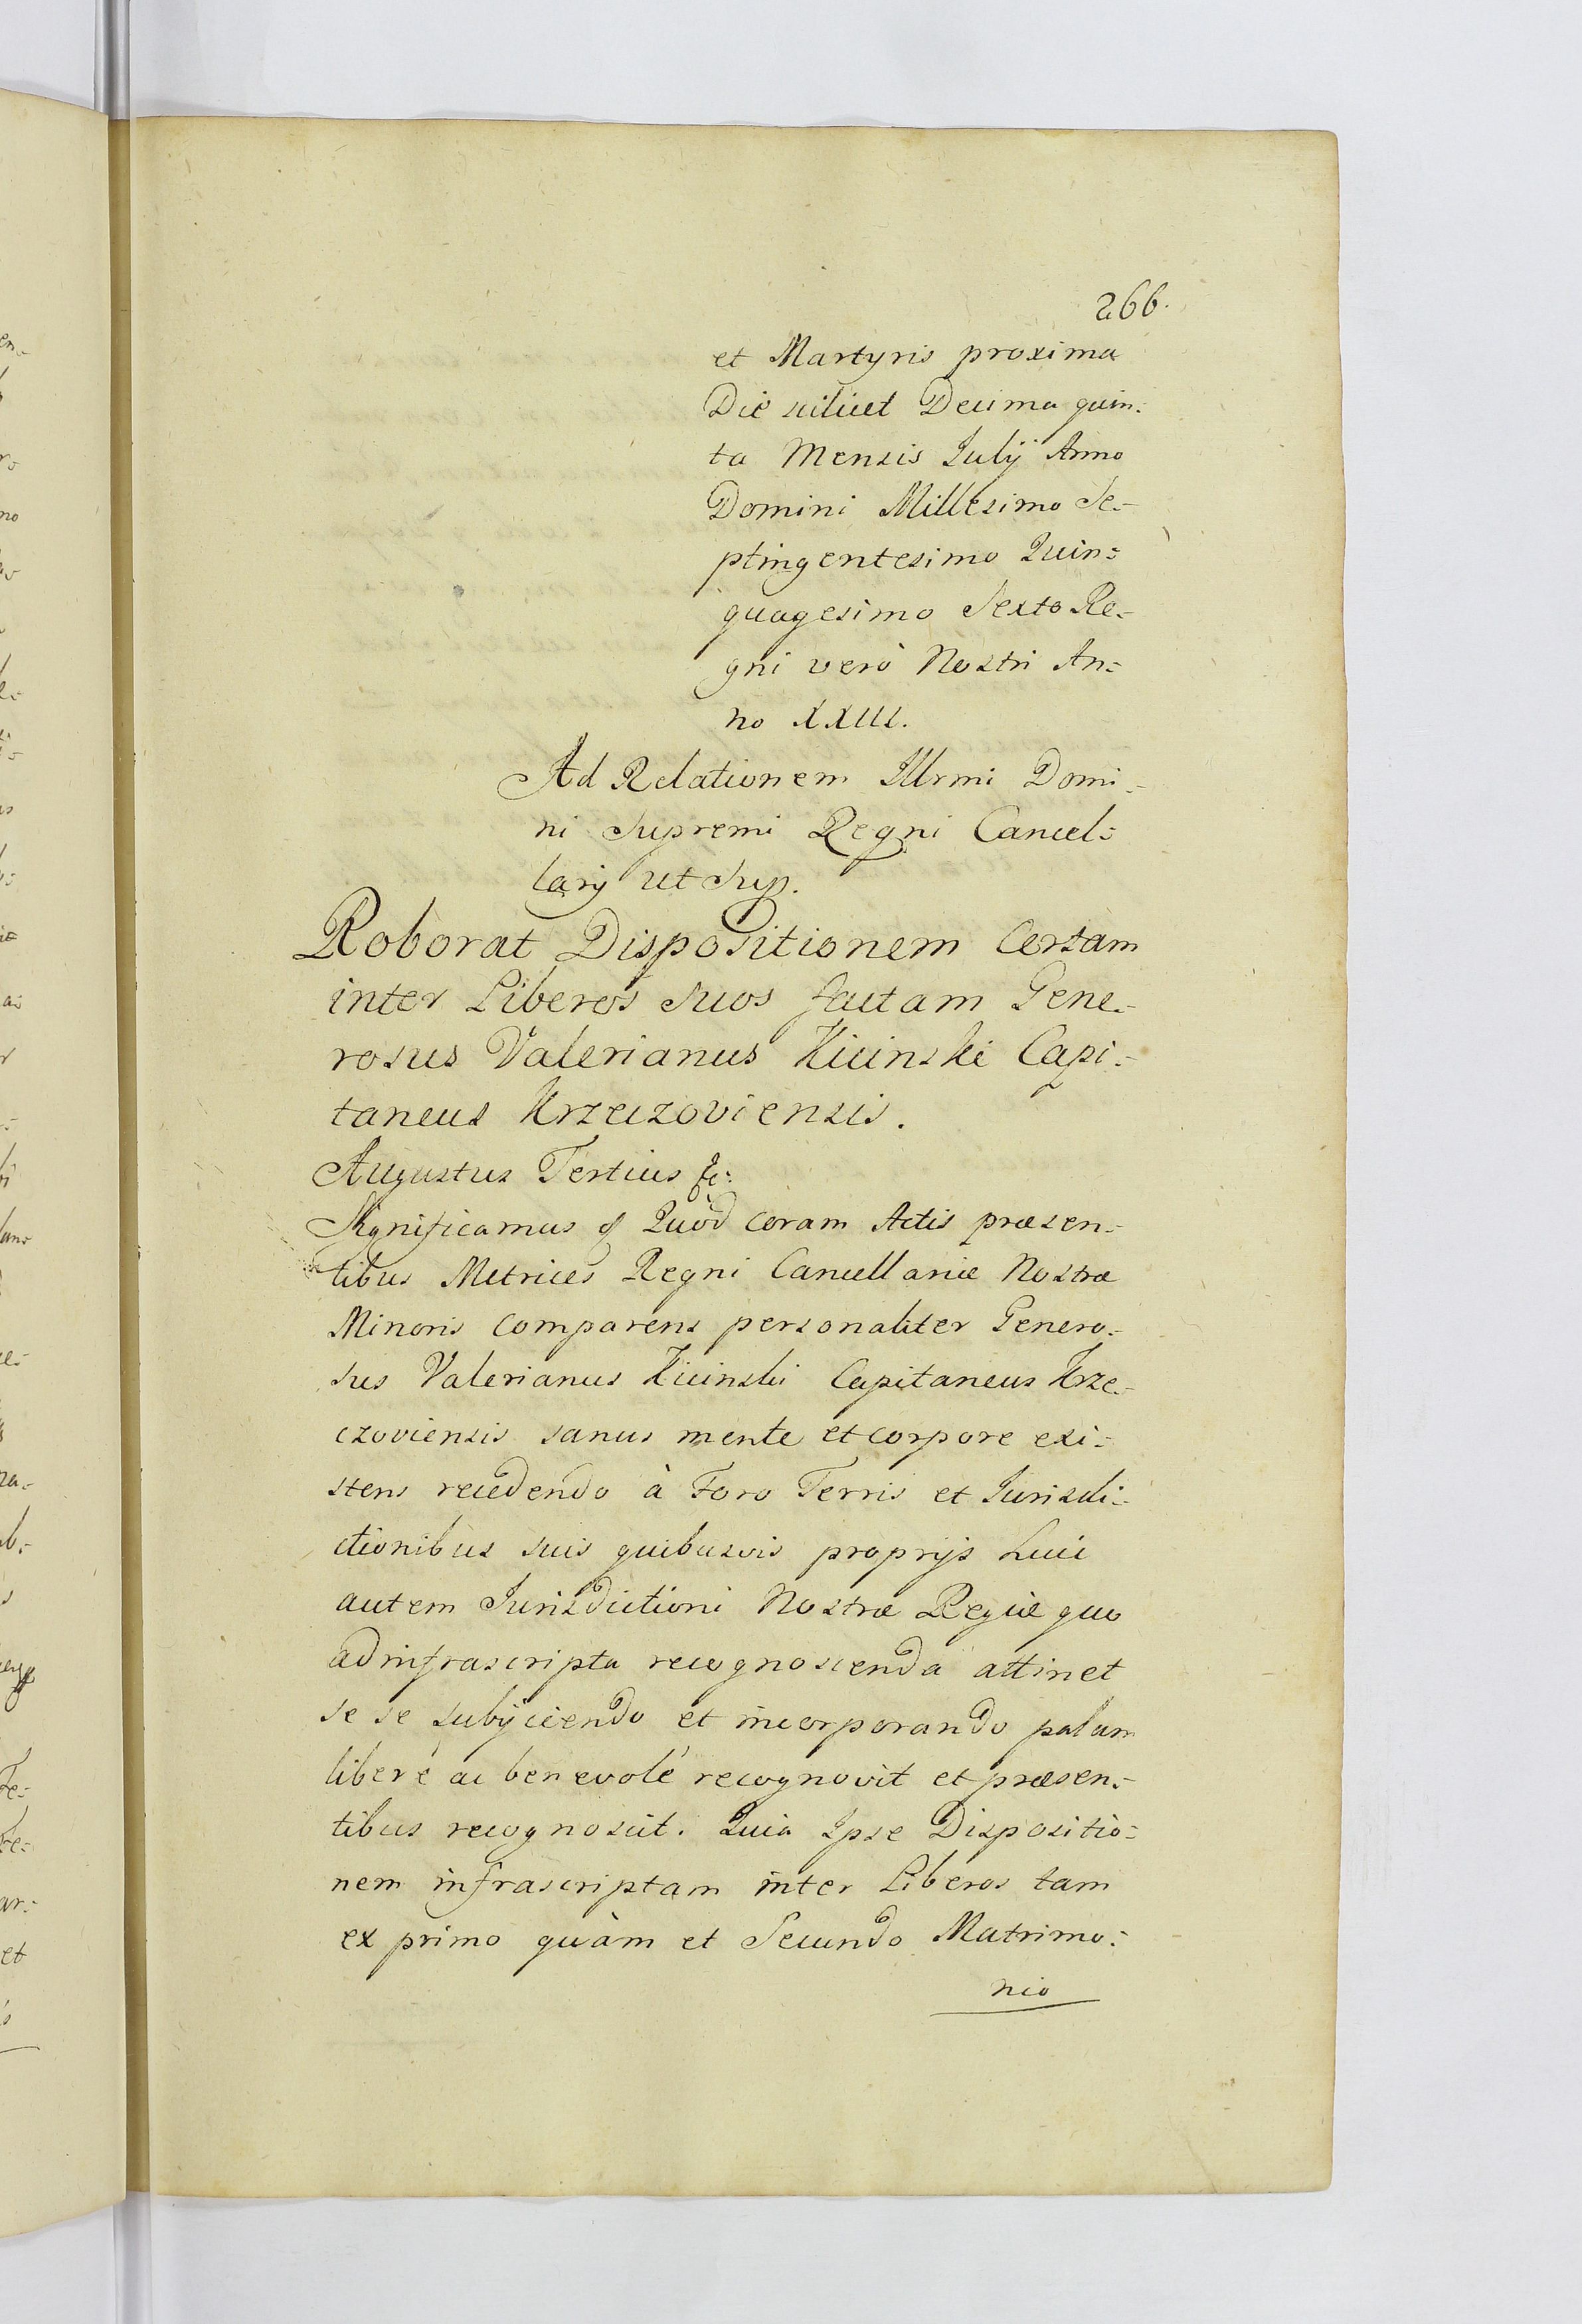 266.
et Martyris proxima
Die scilicet Decima quin:
ta Mensis Julÿ Anno
Domini Millesimo Se-
ptingentesimo Quin:
quagesimo Sexto Re-
gni verò Nostri An:
no XXIII.
Ad Relationem Illrmi Domi-
ni Supremi Regni Cancel:
larÿ ut Sup.
Roborat Dispositionem Certam
inter Liberos Suos factam Gene-
rosus Valerianus Kicinski Capi-
taneus Krzeczoviensis.
Augustus Tertius &c:
Significamus & Quòd coram Actis præsen-
tibus Metrices Regni Cancellariæ Nostræ
Minoris comparens personaliter Genero-
sus Valerianus Kicinski Capitaneus Krze-
czoviensis sanus mente et corpore exi-
stens recedendo à Foro Terris et Jurisdi-
ctionibus suis quibusvis proprÿs huic
autem Jurisdictioni Nostræ Regiæ quo
ad infrascripta recognoscenda attinet
se se subÿciendo et incorporando palam
liberé ac benevolé recognovit et præsen-
tibus recognoscit. Quia Ipse Dispositio:
nem infrascriptam inter Liberos tam
ex primo quàm et Secundo Matrimo:
nio